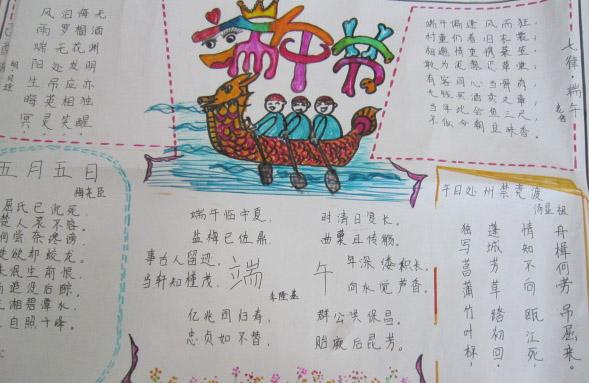 端午节
风泊海无
雨罗棚酒
瑞无花洲
阳处发明
生吊应亦
晦英相独
冥灵笑醒
七律·端午
老舍
端午偏逢风雨狂，
村童仍着旧衣裳；
相邀情重携蓑笠，
敢为泥深恋草堂；
有客同心当骨肉，
无钱买酒卖文章；
当年此会鱼三尺，
不似今朝豆味香。
五月五日
梅尧臣
屈氏已沉死，
楚人哀不容。
何尝奈谗谤，
徒欲却蛟龙。
未泯生前恨，
而追没后踪。
沅湘碧潭水，
自照千峰。
端午临中夏，
时清日复长。
盐梅已佐鼎，
曲糵且传觞。
事古人留迹，
年深缕积长。
当轩知槿茂，
向水觉芦香。
端午
李隆基
亿兆同归寿，
群公共保昌。
忠贞如不替，
贻厥后昆芳。
午日处州禁竞渡
汤显祖
独写菖蒲竹叶杯，
蓬城芳草踏初回。
情知不向瓯江死，
舟楫何劳吊屈来。